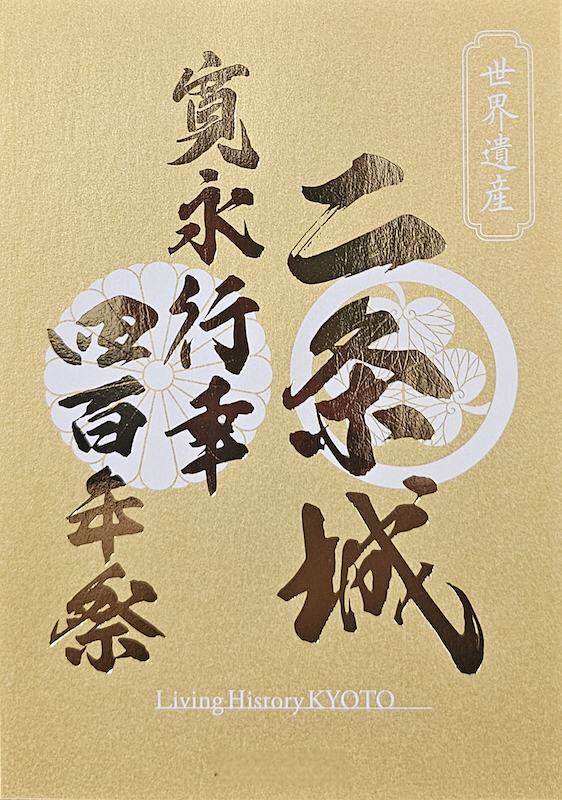 世界遺産
二条城
寛永行幸
四百年祭
Living History KYOTO